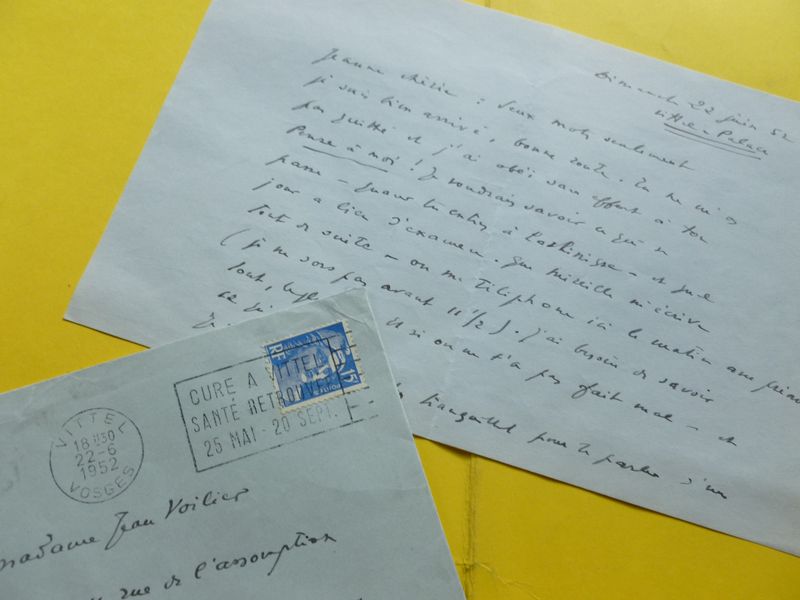 Dimanche 22 juin 52
Vittel-Palace
Jeanne chérie : deux mots seulement
je suis bien arrivé, bonne route. Tu ne m'as
pas quitté. et j'ai obéi sans effort à ton
Pense à moi ! Je voudrais savoir ce qui se
passe - quand tu entres à - et quel
jour a lieu l'examen. que Mireille m'écrive
tout de suite - ou me téléphone ici le matin
(je ne sors pas avant 11 1/2). j'ai besoin de savoir
tout,
ce qui et si on ne t'a pas fait mal - et
tranquille pour te parler d'un
CURE A VITTEL
SANTÉ RETROUVÉE
25 MAI - 20 SEPT.
RF
15
VITTEL
18 H30
22-6
1952
VOSGES
Madame Jean Voilier
rue de l'assomption